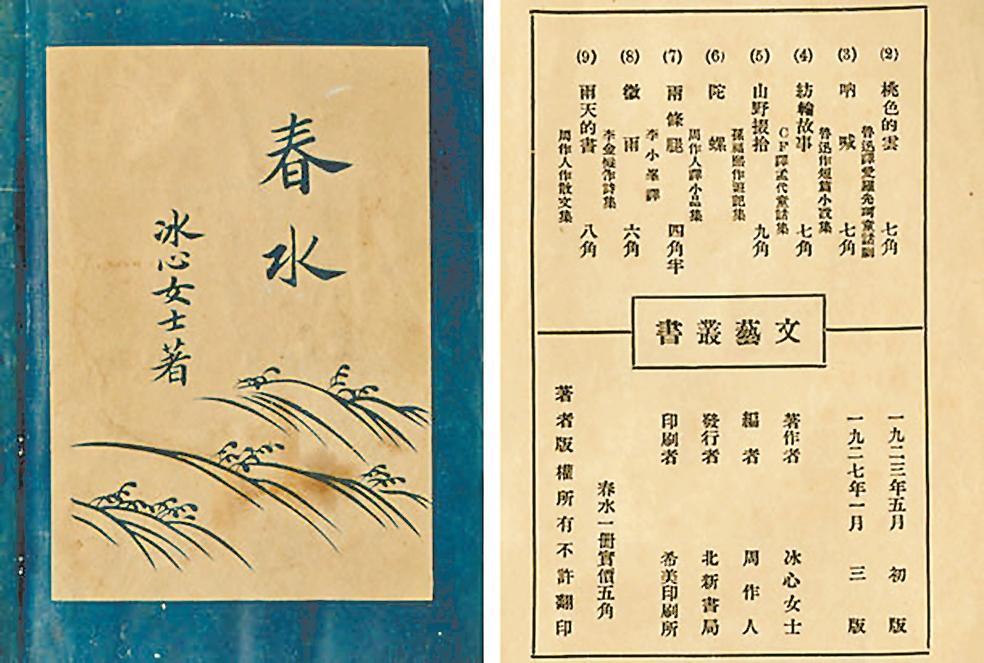 春水
冰心女士著
(2) 桃色的雲 七角
魯迅譯愛羅先珂童話劇
(3) 吶喊 七角
魯迅作短篇小說集
(4) 紡輪故事 七角
CF譯孟代童話集
(5) 山野掇拾 九角
孫福熙作遊記集
(6) 陀螺
周作人譯小品集
(7) 兩條腿 四角半
李小峯譯
(8) 微雨 六角
李金髮作詩集
(9) 雨天的書 八角
周作人作散文集
文藝叢書
一九二三年五月 初版
一九二七年一月 三版
著作者 冰心女士
編者 周作人
發行者 北新書局
印刷者 希美印刷所
春水一册實價五角
著者版權所有不許翻印